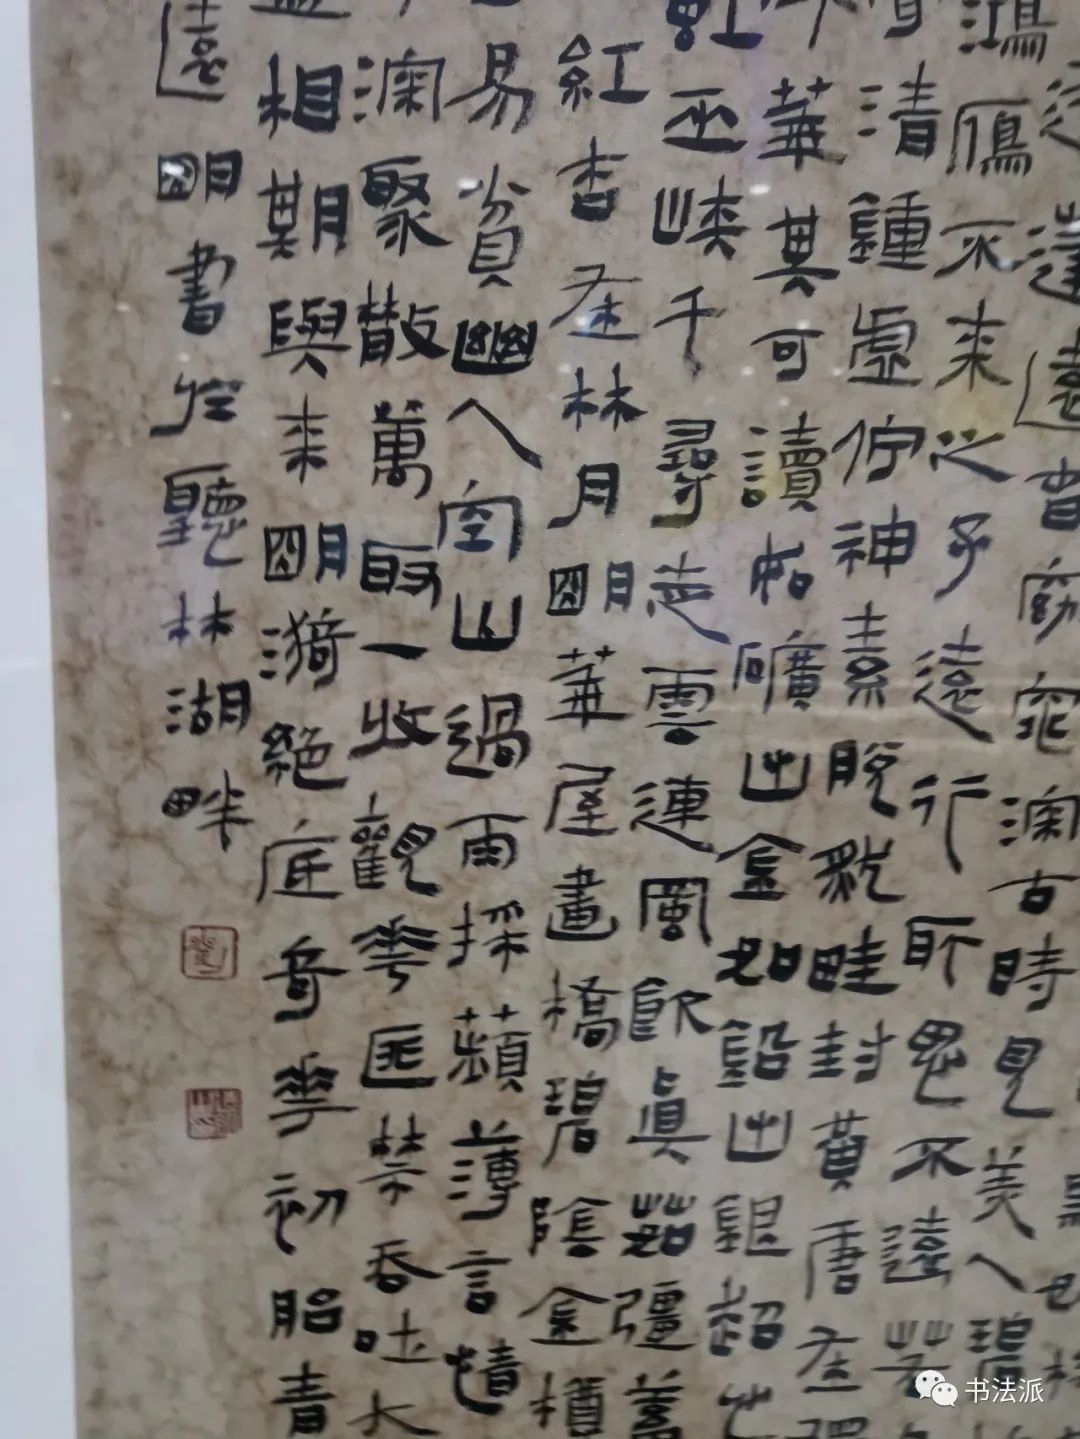 逵蓬遠
曾窈窕深古時見美人碧
鴻雁不来之子遠行所思不遠若
清鐘虛佇神素脱然畦封黃唐在獨
華其可讀如礦出金如鉛出銀超
巫峽千尋走雲連風飲真茹彊蓄
紅杏在林月明華屋畫橋碧陰金樽
易貧幽人空山過雨採蘋薄言情
深聚散萬取一收觀花匪禁吞吐大
相期與来明漪絕底奇花初胎青
遠明書於聽林湖畔
书法派